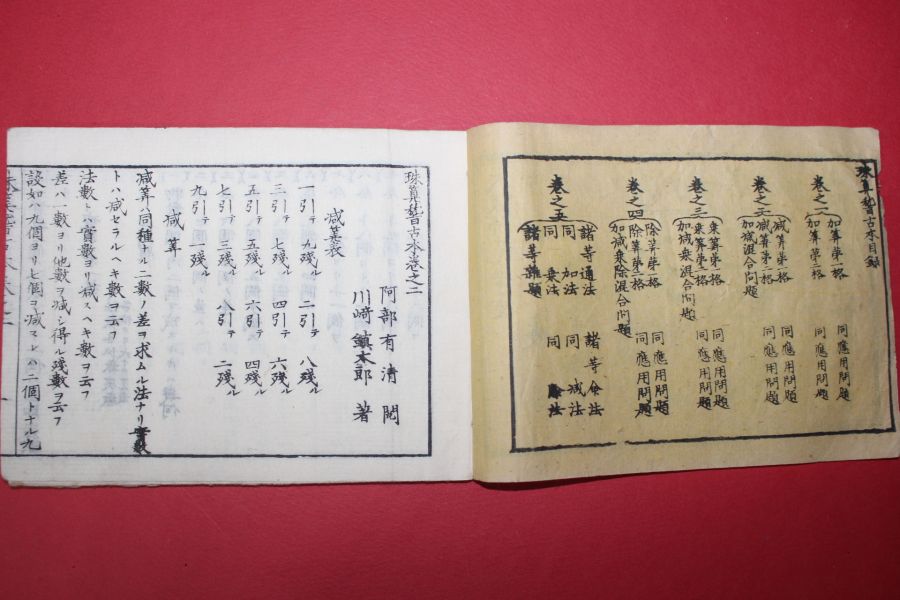 珠算稽古本目録
巻之一
加算第一格 同應用問題
加算第二格 同應用問題
巻之二
減算第一格 同應用問題
減算第二格 同應用問題
加減混合問題
巻之三
乗算第一格 同應用問題
乗算第二格 同應用問題
加減乗混合問題
巻之四
除算第一格 同應用問題
除算第二格 同應用問題
加減乗除混合問題
巻之五
諸等通法 諸等命法
同 加法 同 減法
同 乗法 同 除法
諸等雜題
珠算稽古本巻之二
阿部有清 閲
川﨑鎮太郎 著
減算表
一引テ 九殘ル 二引テ 八殘ル
三引テ 七殘ル 四引テ 六殘ル
五引テ 五殘ル 六引テ 四殘ル
七引テ 三殘ル 八引テ 二殘ル
九引テ 一殘ル
減算
減算ハ同種ノ二數ノ差ヲ求ムル法ナリ實數
トハ減セラルヘキ數ヲ云フ
法數トハ實數ヨリ減スヘキ數ヲ云フ
差ハ一數ヨリ他數ヲ減シ得ル殘數ヲ云フ
設如ハ九個ヨリ七個ヲ減スレハ二個トナル九